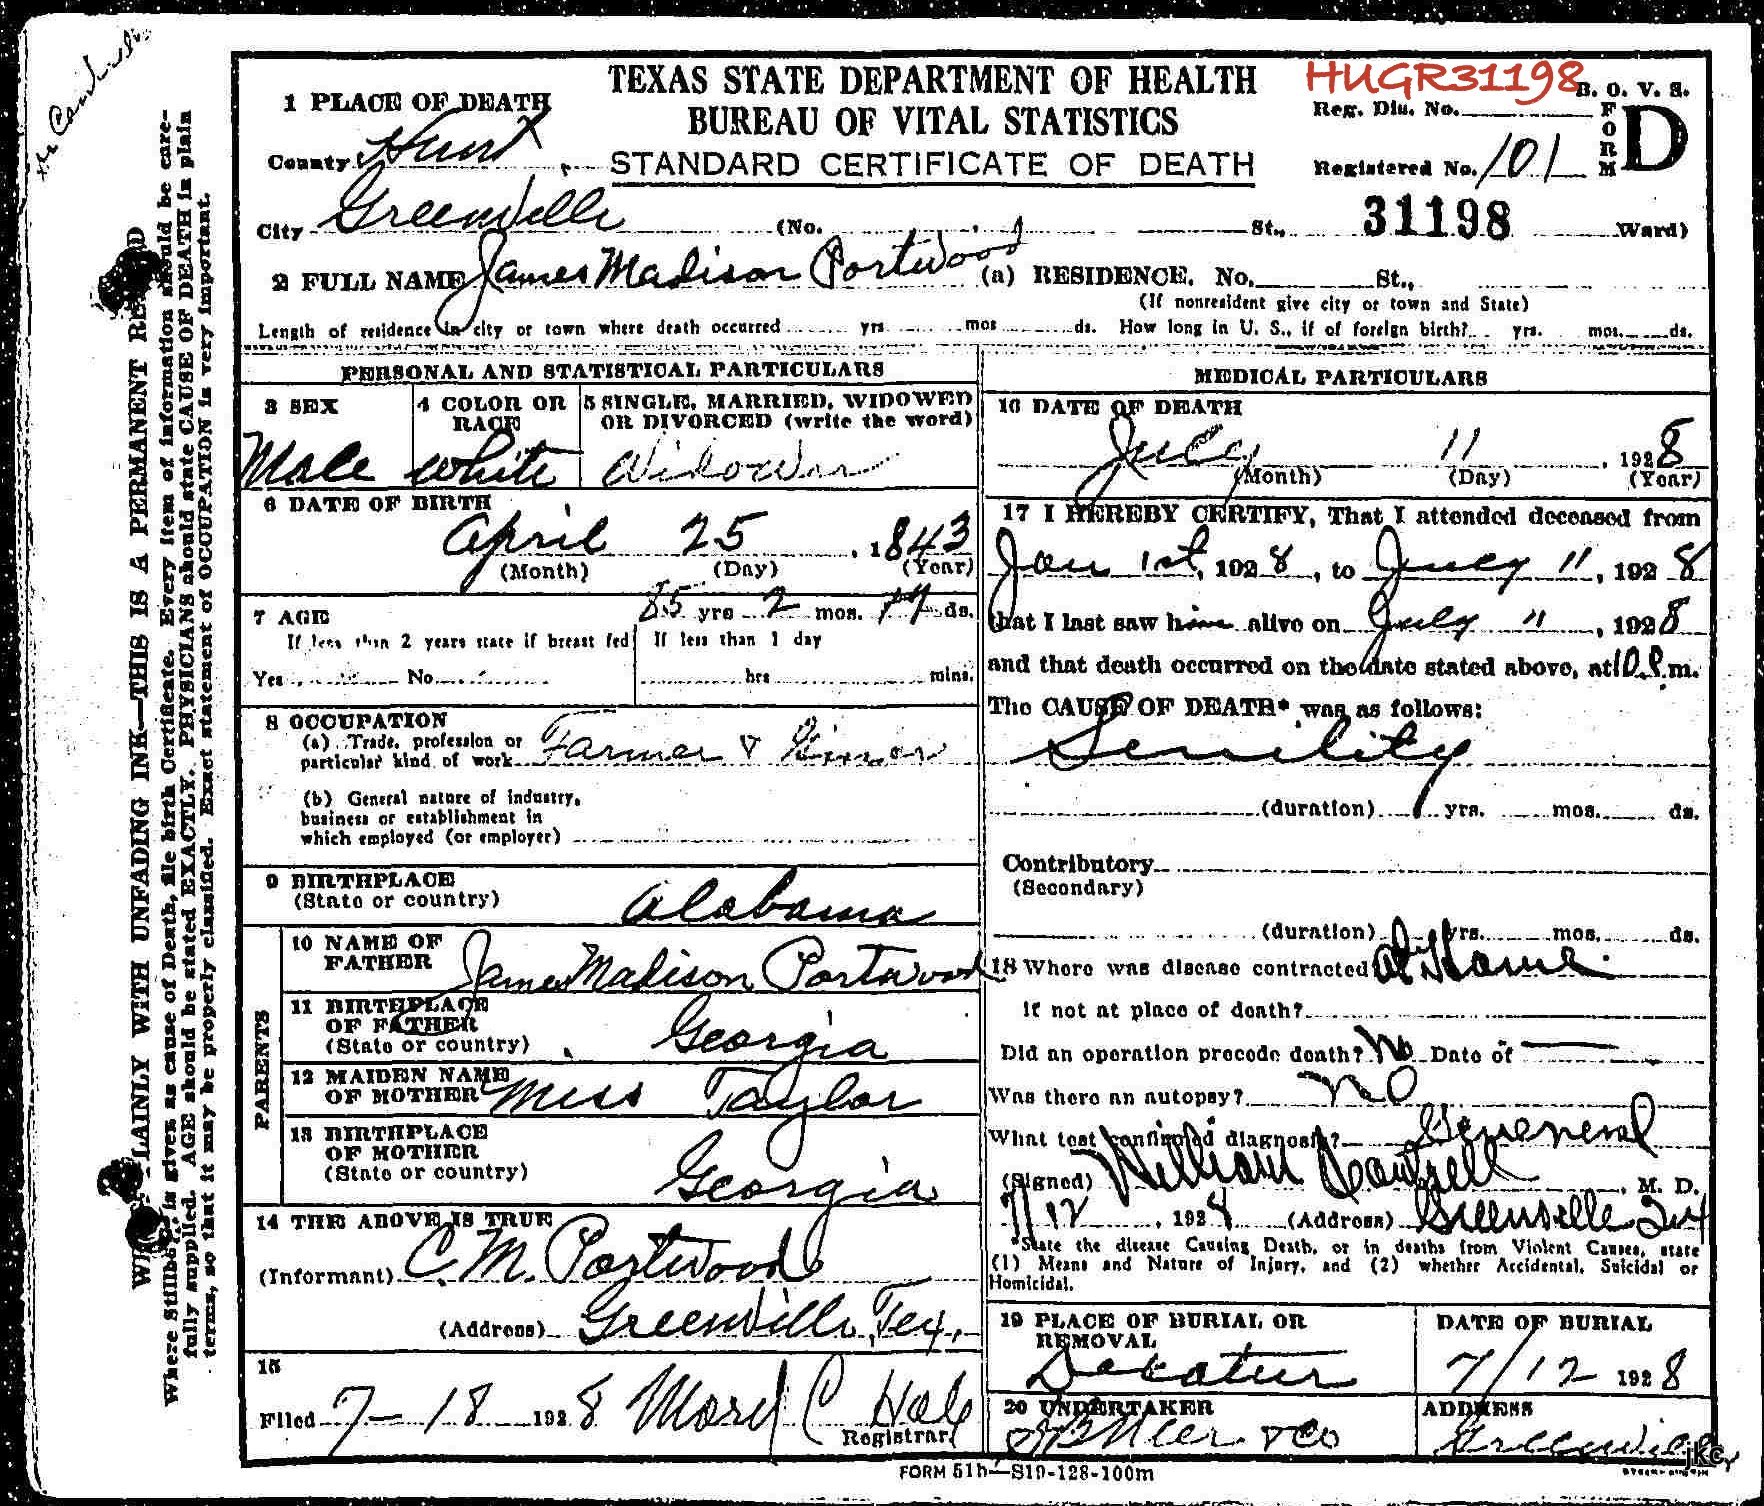 TEXAS STATE DEPARTMENT OF HEALTH
BUREAU OF VITAL STATISTICS
STANDARD CERTIFICATE OF DEATH
HUGR31198
B. O. V. S.
FORM D
Reg. Dis. No.
Registered No. 101
31198
1 PLACE OF DEATH
County Hunt
City Greenville (No. St., Ward)
2 FULL NAME James Madison Portwood (a) RESIDENCE. No. St.,
(If nonresident give city or town and State)
Length of residence in city or town where death occurred yrs mos ds. How long in U. S., if of foreign birth? yrs. mos. ds.
PERSONAL AND STATISTICAL PARTICULARS
3 SEX
Male
4 COLOR OR RACE
white
5 SINGLE, MARRIED, WIDOWED
OR DIVORCED (write the word)
Widower
6 DATE OF BIRTH
April 25, 1843
(Month) (Day) (Year)
7 AGE 85 yrs 2 mos. ds.
If less than 2 years state if breast fed
Yes No
If less than 1 day
hrs mins.
8 OCCUPATION
(a) Trade, profession or
particular kind of work Farmer &
(b) General nature of industry,
business or establishment in
which employed (or employer)
9 BIRTHPLACE
(State or country) Alabama
PARENTS
10 NAME OF
FATHER James Madison Portwood
11 BIRTHPLACE
OF FATHER
(State or country) Georgia
12 MAIDEN NAME
OF MOTHER Miss Taylor
13 BIRTHPLACE
OF MOTHER
(State or country) Georgia
14 THE ABOVE IS TRUE
(Informant) C. M. Portwood
(Address) Greenville, Tex.
15
Filed 7-18 1928 C Hale
Registrar
MEDICAL PARTICULARS
16 DATE OF DEATH
July 11, 1928
(Month) (Day) (Year)
17 I HEREBY CERTIFY, That I attended deceased from
Jan 1st, 1928, to July 11, 1928
that I last saw him alive on July 11, 1928
and that death occurred on the date stated above, at 10 P.m.
The CAUSE OF DEATH* was as follows:
Senility
(duration) yrs. mos. ds.
Contributory
(Secondary)
(duration) yrs. mos. ds.
18 Where was disease contracted at Home
if not at place of death?
Did an operation precede death? No Date of
Was there an autopsy? No
What test confirmed diagnosis? General
(Signed) William Cantrell, M. D.
7/12, 1928 (Address) Greenville Tex
*State the disease Causing Death, or in deaths from Violent Causes, state
(1) Means and Nature of Injury, and (2) whether Accidental, Suicidal or
Homicidal.
19 PLACE OF BURIAL OR
REMOVAL
Decatur
DATE OF BURIAL
7/12 1928
20 UNDERTAKER
& Co
ADDRESS
Greenville
jkc
FORM 51b—S19-128-100m
LAINLY WITH UNFADING INK—THIS IS A PERMANENT RE D
Where Stillborn is given as cause of Death, file birth Certificate. Every item of information should be care-
fully supplied. AGE should be stated EXACTLY. PHYSICIANS should state CAUSE OF DEATH in plain
terms, so that it may be properly classified. Exact statement of OCCUPATION is very important.